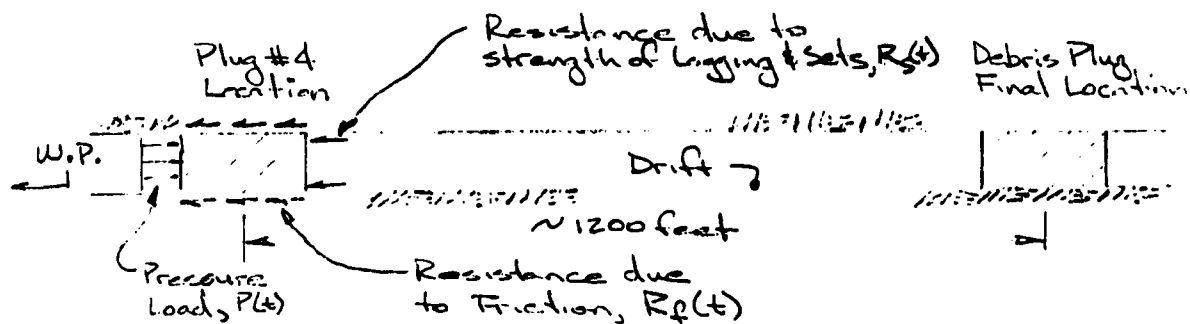 Resistance due to
strength of Lagging & Sets, Rs(t)
Plug #4
Location
Debris Plug
Final Location
W.P.
Drift
~1200 feet
Pressure
Load, P(t)
Resistance due
to Friction, Rf(t)